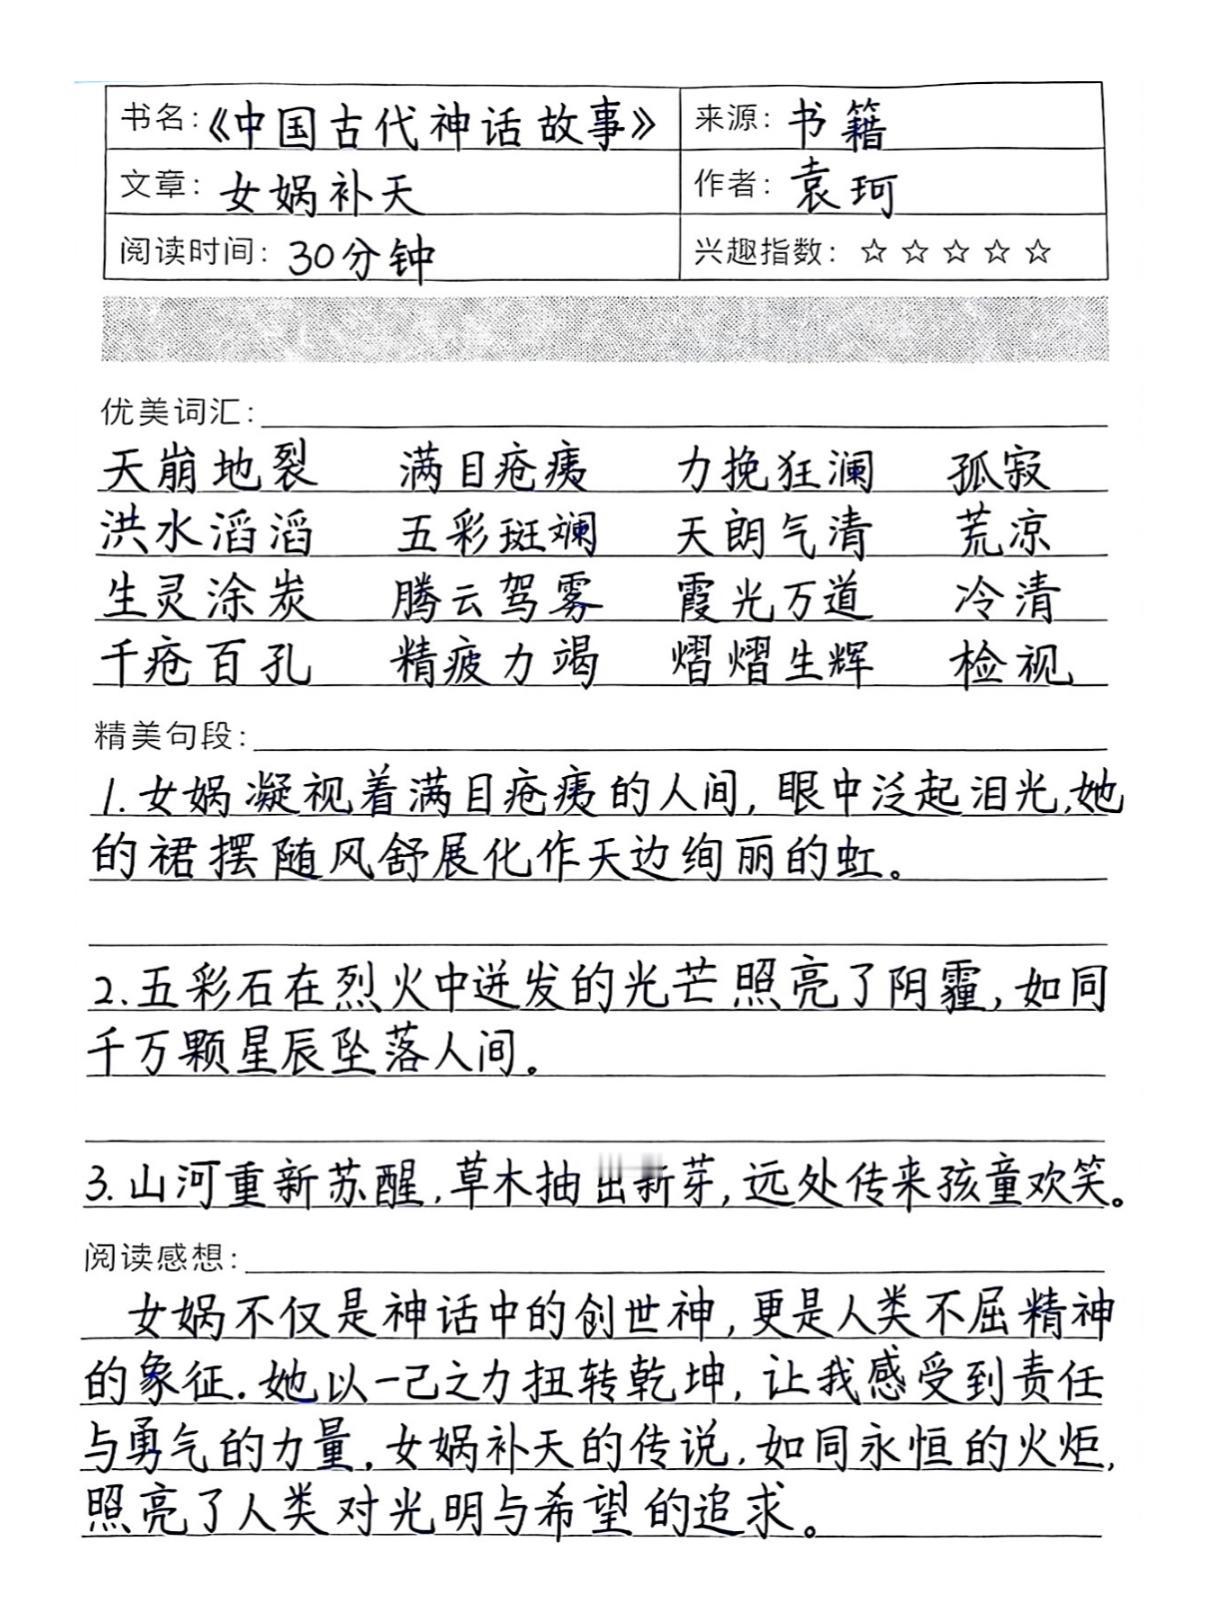 书名:《中国古代神话故事》 来源: 书籍
文章: 女娲补天 作者: 袁珂
阅读时间: 30分钟 兴趣指数: ☆☆☆☆☆
优美词汇:
天崩地裂 满目疮痍 力挽狂澜 孤寂
洪水滔滔 五彩斑斓 天朗气清 荒凉
生灵涂炭 腾云驾雾 霞光万道 冷清
千疮百孔 精疲力竭 熠熠生辉 检视
精美句段:
1.女娲凝视着满目疮痍的人间,眼中泛起泪光,她
的裙摆随风舒展化作天边绚丽的虹。
2.五彩石在烈火中迸发的光芒照亮了阴霾,如同
千万颗星辰坠落人间。
3.山河重新苏醒,草木抽出新芽,远处传来孩童欢笑。
阅读感想:
女娲不仅是神话中的创世神,更是人类不屈精神
的象征.她以一己之力扭转乾坤,让我感受到责任
与勇气的力量.女娲补天的传说,如同永恒的火炬,
照亮了人类对光明与希望的追求。